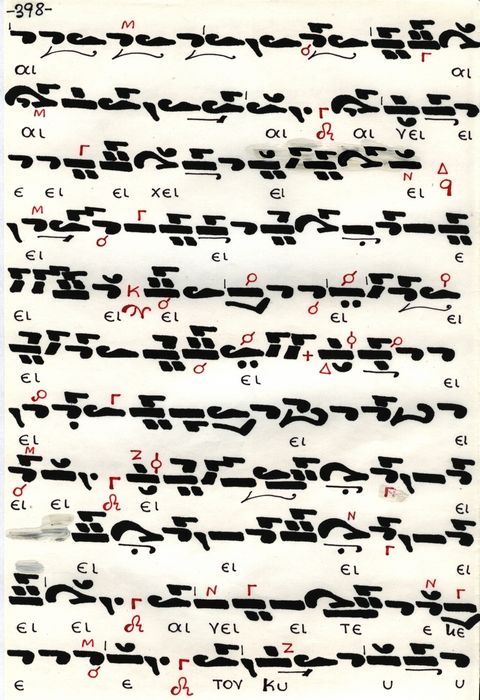 -398-
Μ Γ
αι αι
Μ Γ
αι αι αι νει ει
Γ Ν Δ
ε ει ει χει ει ει q
Μ Γ
ει ει ε
Κ
ει ει ει ει
Δ
ει ει ει
Γ
ει ει ει
Μ Ζ Γ
ει ει ει ει
Ν Γ
ει ει ει ει
Γ Ν Γ Ν Γ
ει ει αι νει ει τε ε κε
Μ Γ Ζ
ε ε του κυ υ υ